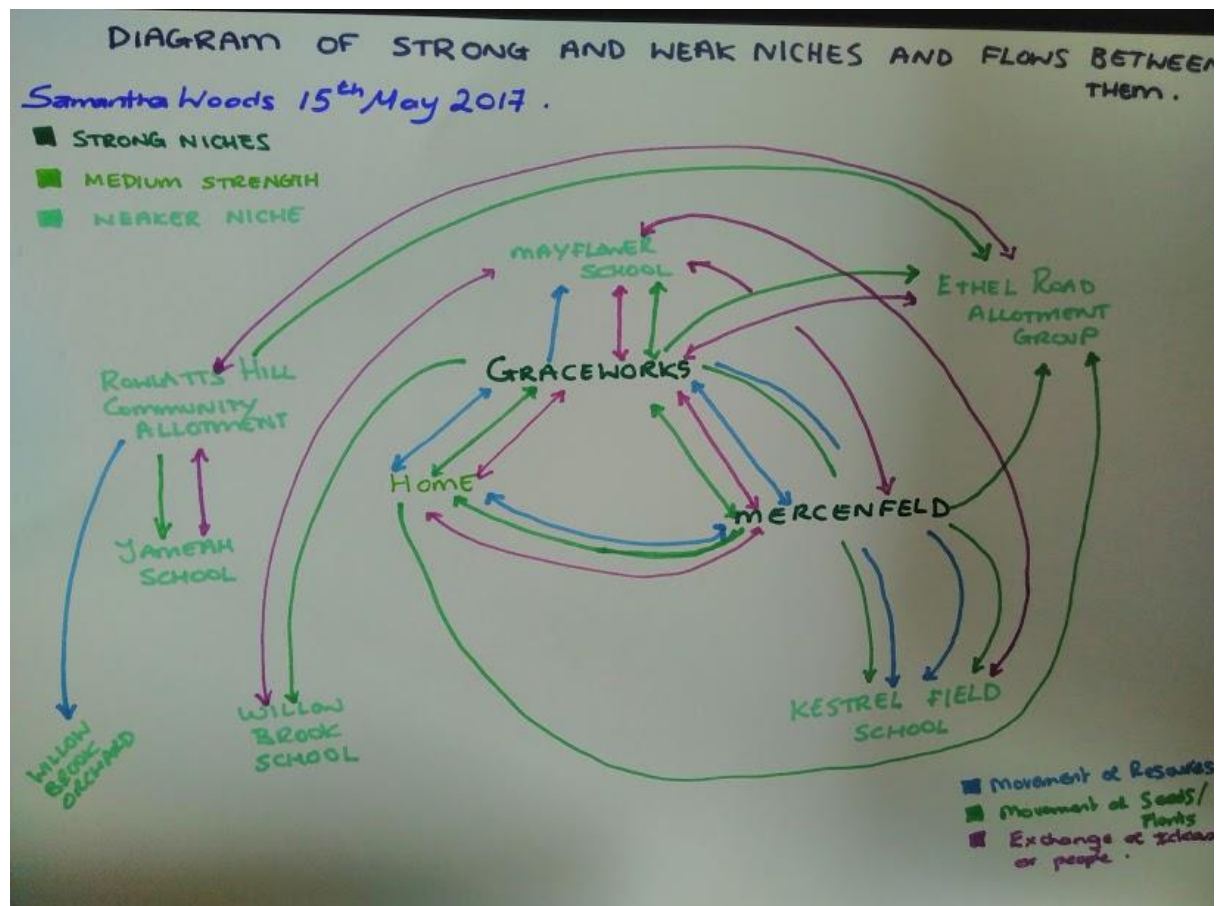 DIAGRAM OF STRONG AND WEAK NICHES AND FLOWS BETWEEN
THEM.
Samantha Woods 15th May 2017.
STRONG NICHES
MEDIUM STRENGTH
WEAKER NICHE
MAYFLOWER
SCHOOL
ETHEL ROAD
ALLOTMENT
GROUP
GRACEWORKS
ROWLATTS HILL
COMMUNITY
ALLOTMENT
HOME
MERCENFELD
JAMEAH
SCHOOL
WILLOW
BROOK
ORCHARD
WILLOW
BROOK
SCHOOL
KESTREL FIELD
SCHOOL
Movement of Resources
Movement of Seeds/
Plants
Exchange of Ideas
or people.